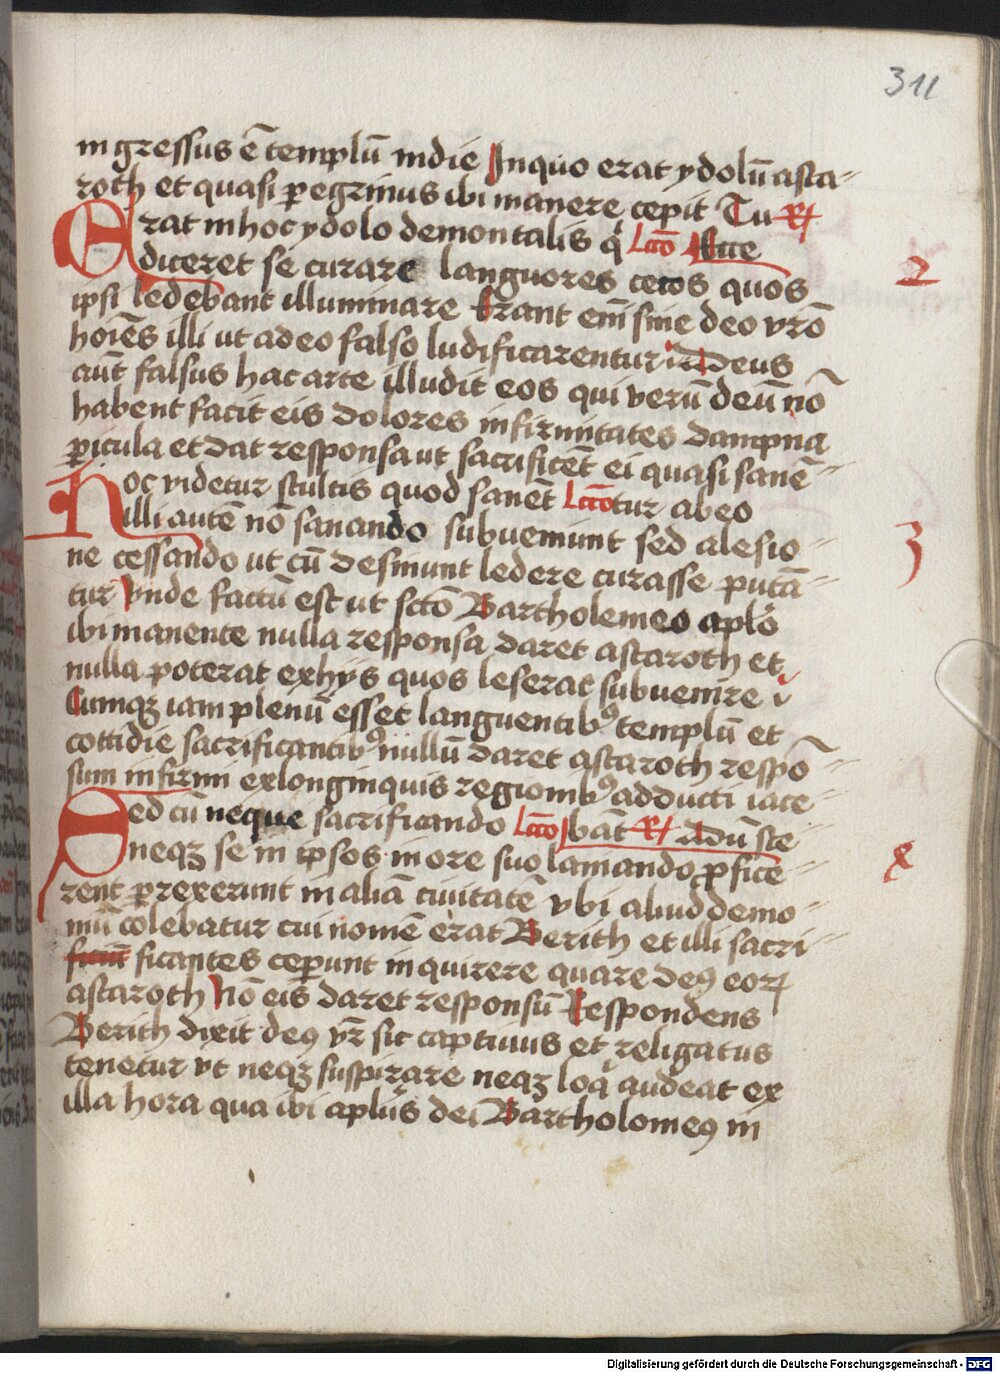 311
ingressus ē templū indie Inquo erat ydolū asta-
roth et quasi peregrinus ibi manere cepit Tu R
Erat inhoc ydolo demon talis q Lcco sate
diceret se curare languores cecos quos
2
ipsi ledebant illuminare Erant em̄ sine deo vrō
hoīes illi ut adeo falso ludificarentur Deus
aūt falsus hac arte illudit eos qui verū deū nō
habent facit eis dolores infirmitates dampna
pericula et dat responsa ut sacrificēt ei quasi sanē-
Hoc videtur stultis quod sanēt Lccotur abeo
illi autē nō sanando subueniunt sed alesio-
3
ne cessando ut cū desinunt ledere curasse putā-
tur Vnde factū est ut sctō Bartholemeo aplō
ibi manente nulla responsa daret astaroth et
nulla poterat exhys quos leserat subuenire
Cumqȝ iam plenū esset languentibꝰ templū et
cottidie sacrificantibꝰ nullū daret astaroth respō-
sum infirmi exlonginquis regionibꝰ adducti iace-
Sed cū neque sacrificando Lcco bāt R Adū ste
neqȝ se in ipsos more suo lamando ꝓfice-
rent perrexerunt in aliā ciuitatē vbi aliud demo-
niū colebatur cui nomē erat Berith et illi sacri-
ficantes ceperunt inquirere quare deꝰ eoꝝ
astaroth Nō eis daret responsū Respondens
Berith dixit deꝰ vr̄ sic captiuus et religatus
tenetur vt neqȝ suspirare neqȝ loq audeat ex
illa hora qua ibi aplūs dei Bartholomeꝰ in
Digitalisierung gefördert durch die Deutsche Forschungsgemeinschaft - DFG